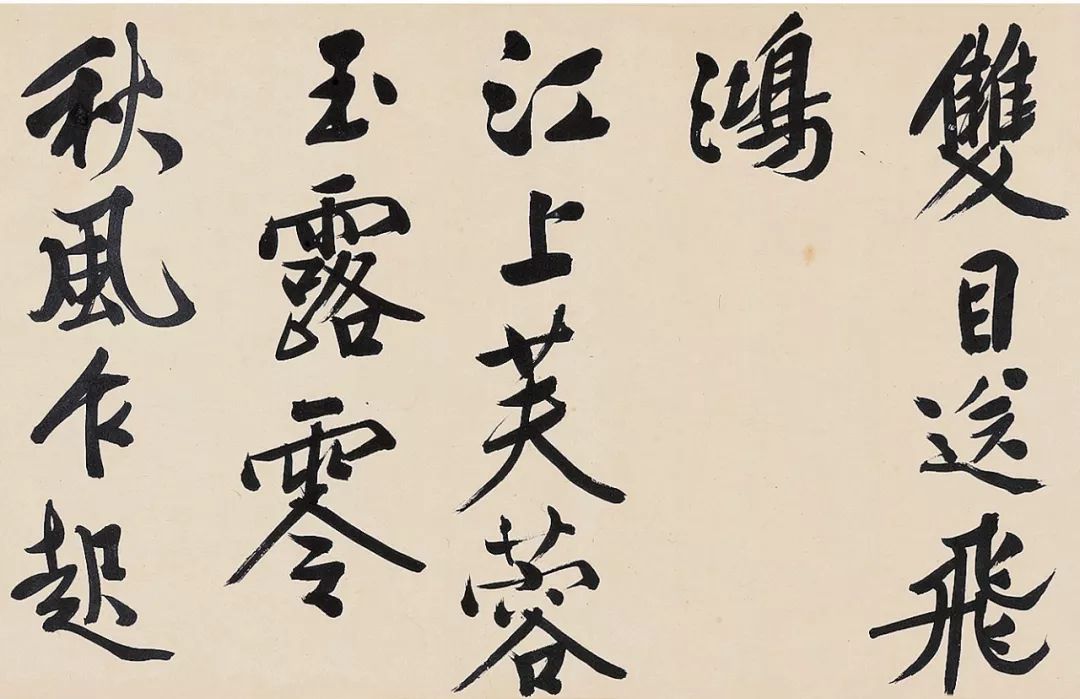 雙目送飛
鴻
江上芙蓉
玉露零
秋風乍起